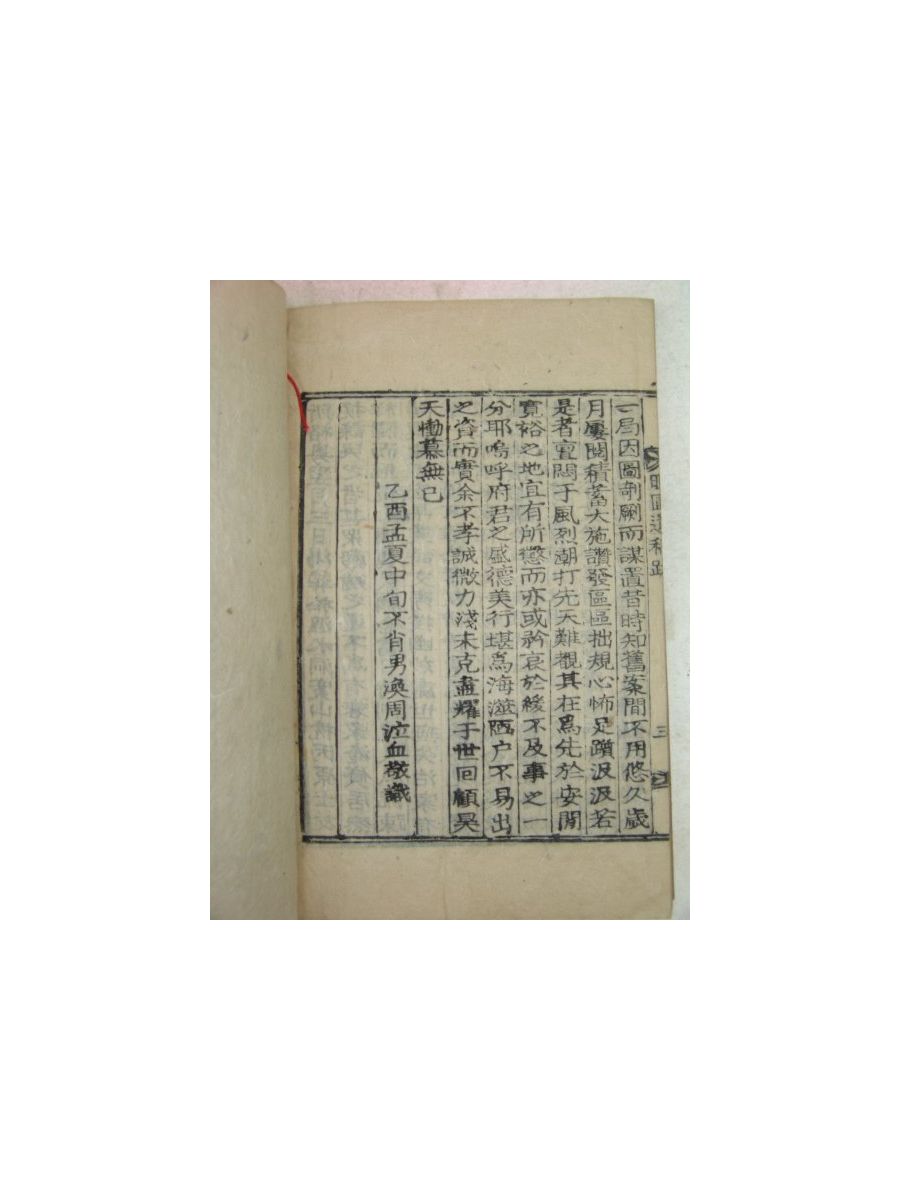 一局因圖剞劂而謀置昔時知舊案間不用悠久歲
月屢閱積蓄大施讚發區區拙規心怖足躓汲汲若
是者亶悶于風烈潮打先天難觀其在爲先於安閒
寬裕之地宜有所懲而亦或矜哀於緩不及事之一
分耶嗚呼府君之盛德美行堪爲海遊陋户不易出
之資而實余不孝誠微力淺未克盡耀于世回顧昊
天慟慕無已
乙酉孟夏中旬不肖男渙周泣血敬識
遺稿跋
三